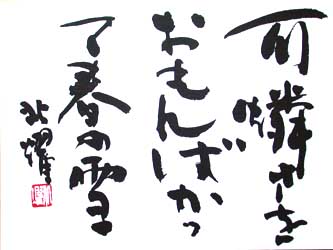 可憐さを
おもんばかっ
て春の雪
北耀